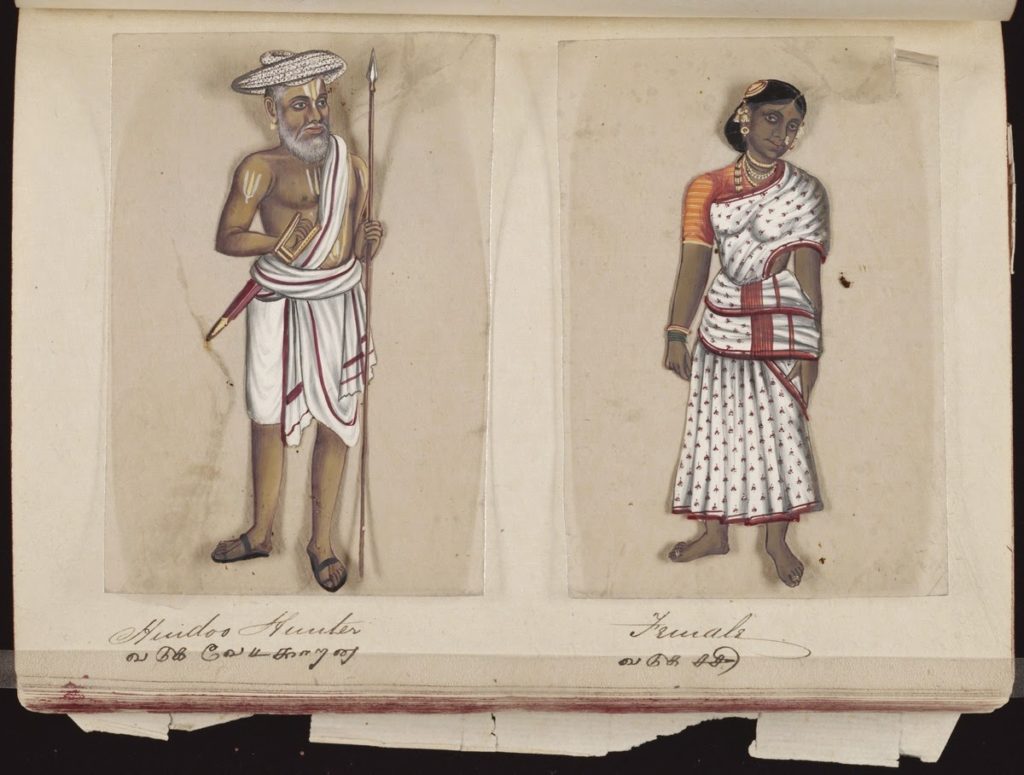 Hindoo Hunter
வடுக வேடகாறன
Female
வடுக சசி